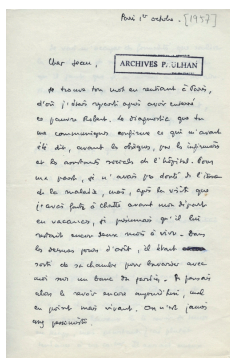 Paris 1er octobre. [1957]
Cher Jean,
ARCHIVES PAULHAN
Je trouve ton mot en rentrant à Paris,
d'où j'étais reparti après avoir enterré
ce pauvre Robert. Le diagnostic que tu
me communiques confirme ce qui m'avait
été dit, avant les obsèques, par les infirmières
et les assistantes sociales de l'hôpital. Pour
ma part, je n'avais pas douté de l'issue
de la maladie, mais, après la visite que
j'avais faite à Chelles avant mon départ
en vacances, je présumais qu'il lui
restait encore deux mois à vivre. Dans
les derniers jours d'août, il était
sorti de sa chambre pour bavarder avec
moi sur un banc du jardin. Je pensais
alors le revoir encore aujourd'hui, mal
en point mais vivant. On n'est jamais
assez pessimiste.